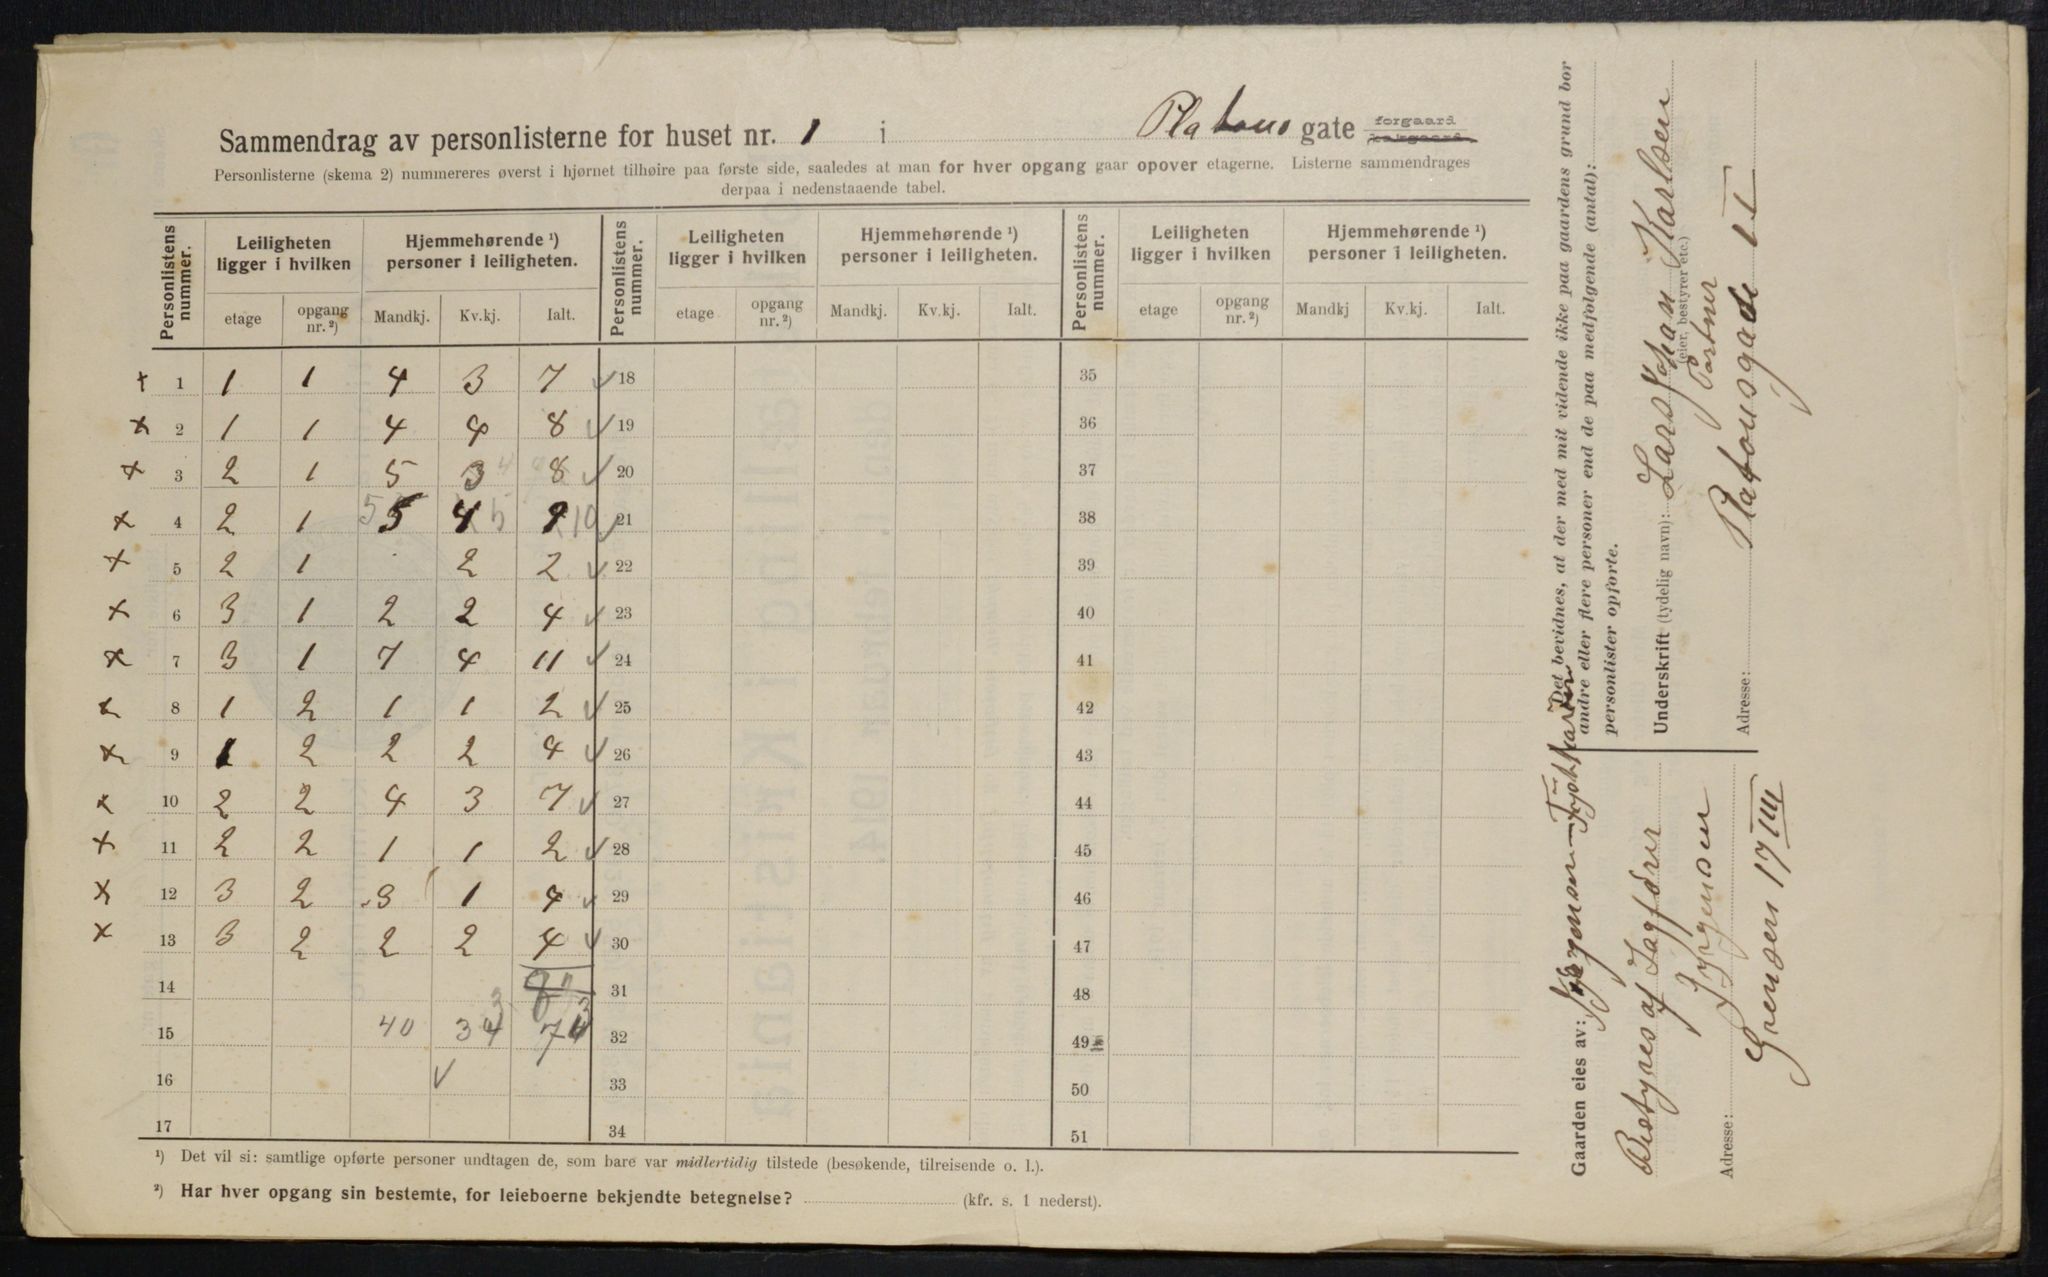 Sammendrag av personlisterne for huset nr. 1 i Platous gate forgaard bakgaard
Personlisterne (skema 2) nummereres øverst i hjørnet tilhøire paa første side, saaledes at man for hver opgang gaar opover etagerne. Listerne sammendrages
derpaa i nedenstaaende tabel.
Personlistens nummer. Leiligheten ligger i hvilken Hjemmehørende ¹) personer i leiligheten. Personlistens nummer. Leiligheten ligger i hvilken Hjemmehørende ¹) personer i leiligheten. Personlistens nummer. Leiligheten ligger i hvilken Hjemmehørende ¹) personer i leiligheten.
etage opgang nr. ²) Mandkj. Kv.kj. Ialt. etage opgang nr. ²) Mandkj. Kv.kj. Ialt. etage opgang nr. ²) Mandkj Kv.kj. Ialt.
x 1 1 1 4 3 7 ✓ 18 35
x 2 1 1 4 4 8 ✓ 19 36
x 3 2 1 5 3 4 8 ✓ 20 37
x 4 2 1 5 5 4 5 9 10 ✓ 21 38
x 5 2 1 2 2 ✓ 22 39
x 6 3 1 2 2 4 ✓ 23 40
x 7 3 1 7 4 11 ✓ 24 41
x 8 1 2 1 1 2 ✓ 25 42
x 9 1 2 2 2 4 ✓ 26 43
x 10 2 2 4 3 7 ✓ 27 44
x 11 2 2 1 1 2 ✓ 28 45
x 12 3 2 3 1 4 ✓ 29 46
x 13 3 2 2 2 4 ✓ 30 47
14 31 48
15 40 34 3 74 3 32 49
16 ✓ 33 50
17 34 51
¹) Det vil si: samtlige opførte personer undtagen de, som bare var midlertidig tilstede (besøkende, tilreisende o. l.).
²) Har hver opgang sin bestemte, for leieboerne bekjendte betegnelse? (kfr. s. 1 nederst).
Det bevidnes, at der med mit vidende ikke paa gaardens grund bor
andre eller flere personer end de paa medfølgende (antal):
personlister opførte.
Underskrift (tydelig navn): Lars Johan Karlsen
(eier, bestyrer etc.)
Portner
Adresse: Platousgade 1 I
Gaarden eies av:
Bestyres af Sagfører
Jørgensen
Adresse: Grensen 17 III